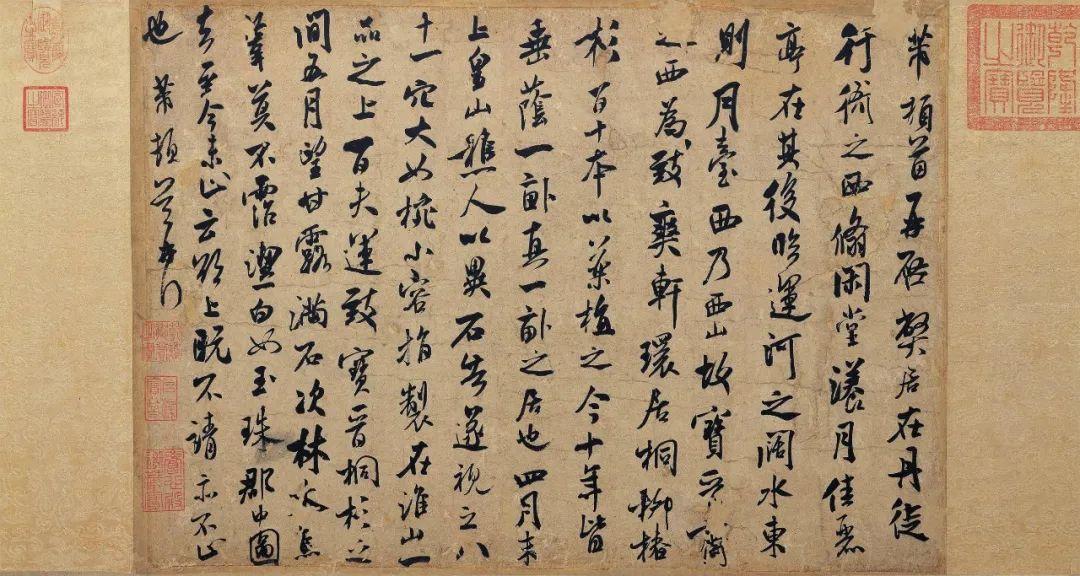 芾頓首再啓弊居在丹徒
行衙之西翛閑堂漾月佳麗
亭在其後臨運河之闊水東
則月臺西乃西山故寶晉齋
之西為致爽軒環居桐柳椿
杉百十本以藥植之今十年皆
垂蔭一畝真一畝之居也四月末
上皇山樵人以異石告遂視之八
十一穴大如椀小容指製在淮山一
品之上百夫運致寶晉桐杉之
間五月望甘露滿石次林木焦
葦莫不霑潔白如玉珠郡中圖
去至今未止云欲上既不請亦不止
也 芾頓首
乾隆御覽之寶